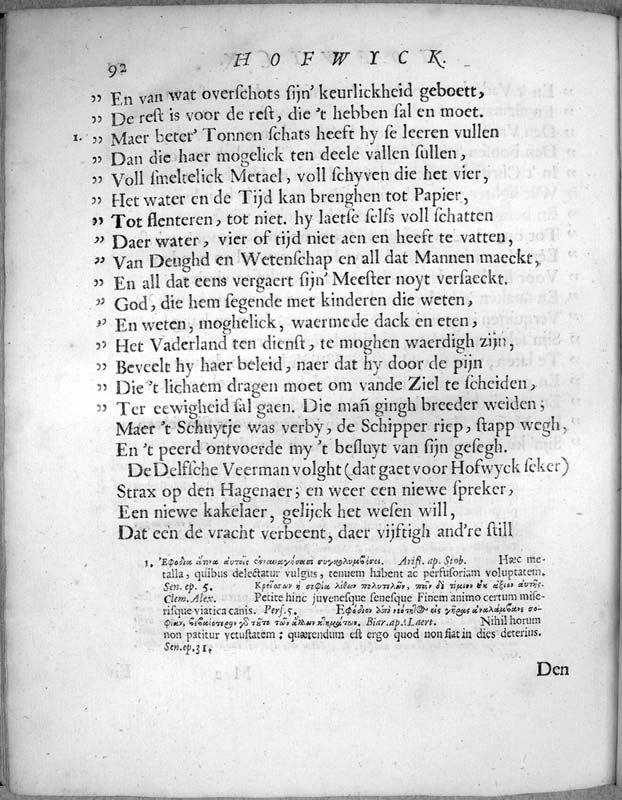 92 HOFWYCK.
„ En van wat overschots sijn' keurlickheid geboett,
„ De rest is voor de rest, die 't hebben sal en moet.
1. „ Maer beter' Tonnen schats heeft hy se leeren vullen
„ Dan die haer mogelick ten deele vallen sullen,
„ Voll smeltelick Metael, voll schyven die het vier,
„ Het water en de Tijd kan brenghen tot Papier,
„ Tot slenteren, tot niet. hy laetse selfs voll schatten
„ Daer water, vier of tijd niet aen en heeft te vatten,
„ Van Deughd en Wetenschap en all dat Mannen maeckt,
„ En all dat eens vergaert sijn' Meester noyt versaeckt.
„ God, die hem segende met kinderen die weten,
„ En weten, moghelick, waermede dack en eten,
„ Het Vaderland ten dienst, te moghen waerdigh zijn,
„ Beveelt hy haer beleid, naer dat hy door de pijn
„ Die 't lichaem dragen moet om vande Ziel te scheiden,
„ Ter eewigheid sal gaen. Die mañ gingh breeder weiden;
Maer 't Schuytje was verby, de Schipper riep, stapp wegh,
En 't peerd ontvoerde my 't besluyt van sijn gesegh.
De Delfsche Veerman volght (dat gaet voor Hofwyck seker)
Strax op den Hagenaer; en weer een niewe spreker,
Een niewe kakelaer, gelijck het wesen will,
Dat een de vracht verbeent, daer vijftigh and're still
1. Ἐφόδια Arist. ap. Stob. Hæc me-
talla, quibus delectatur vulgus, tenuem habent ac perfusoriam voluptatem.
Sen. ep. 5. Κρείσσων ἡ σοφία λίθων πολυτελῶν,
Clem. Alex. Petite hinc juvenesque senesque Finem animo certum mise-
risque viatica canis. Pers. 5. Ἐφόδιον ἀπὸ νεότητος εἰς γῆρας ἀναλάμβανε σο-
φίαν, Biar. ap. Laert. Nihil horum
non patitur vetustatem; quærendum est ergo quod non fiat in dies deterius.
Sen. ep. 31.
Den